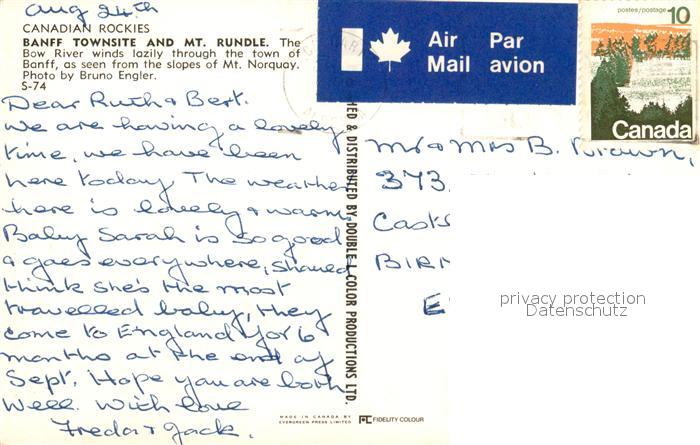 Aug 24th
CANADIAN ROCKIES
BANFF TOWNSITE AND MT. RUNDLE. The
Bow River winds lazily through the town of
Banff, as seen from the slopes of Mt. Norquay.
Photo by Bruno Engler.
S-74
Dear Ruth & Bert.
We are having a lovely
time, we have been
here today. The weather
here is lovely & warm.
Baby Sarah is so good
& goes everywhere, should
think she's the most
travelled baby, they
come to England for 6
months at the end of
Sept. Hope you are both
well. With love
Freda & Jack.
Air Mail
Par avion
postes/postage 10
Canada
Mr & Mrs B. Brown,
373.
BIR
E
& DISTRIBUTED BY DOUBLE L COLOR PRODUCTIONS LTD.
MADE IN CANADA BY
EVERGREEN PRESS LIMITED
FIDELITY COLOUR
privacy protection
Datenschutz